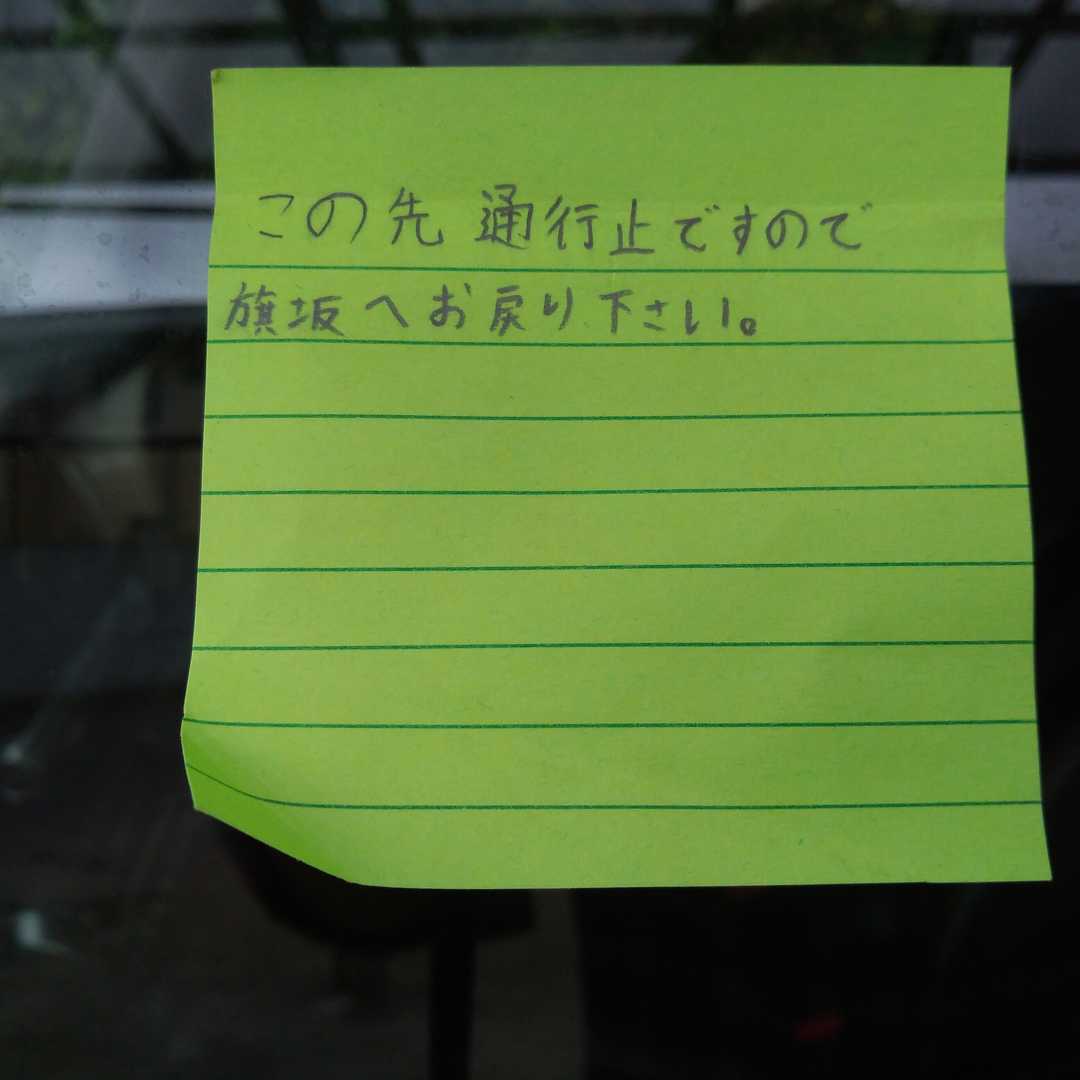 この先 通行止ですので
旗坂へお戻り下さい。